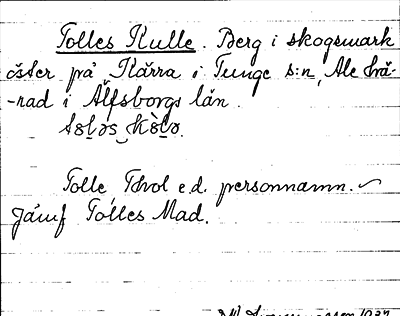 Tolles Kulle. Berg i skogsmark
öster på Kärra i Tunge s:n, Ale hä-
-rad i Älfsborgs län.
Tolle Thol e.d. personnamn.
Jämf Tolles Mad.
1927